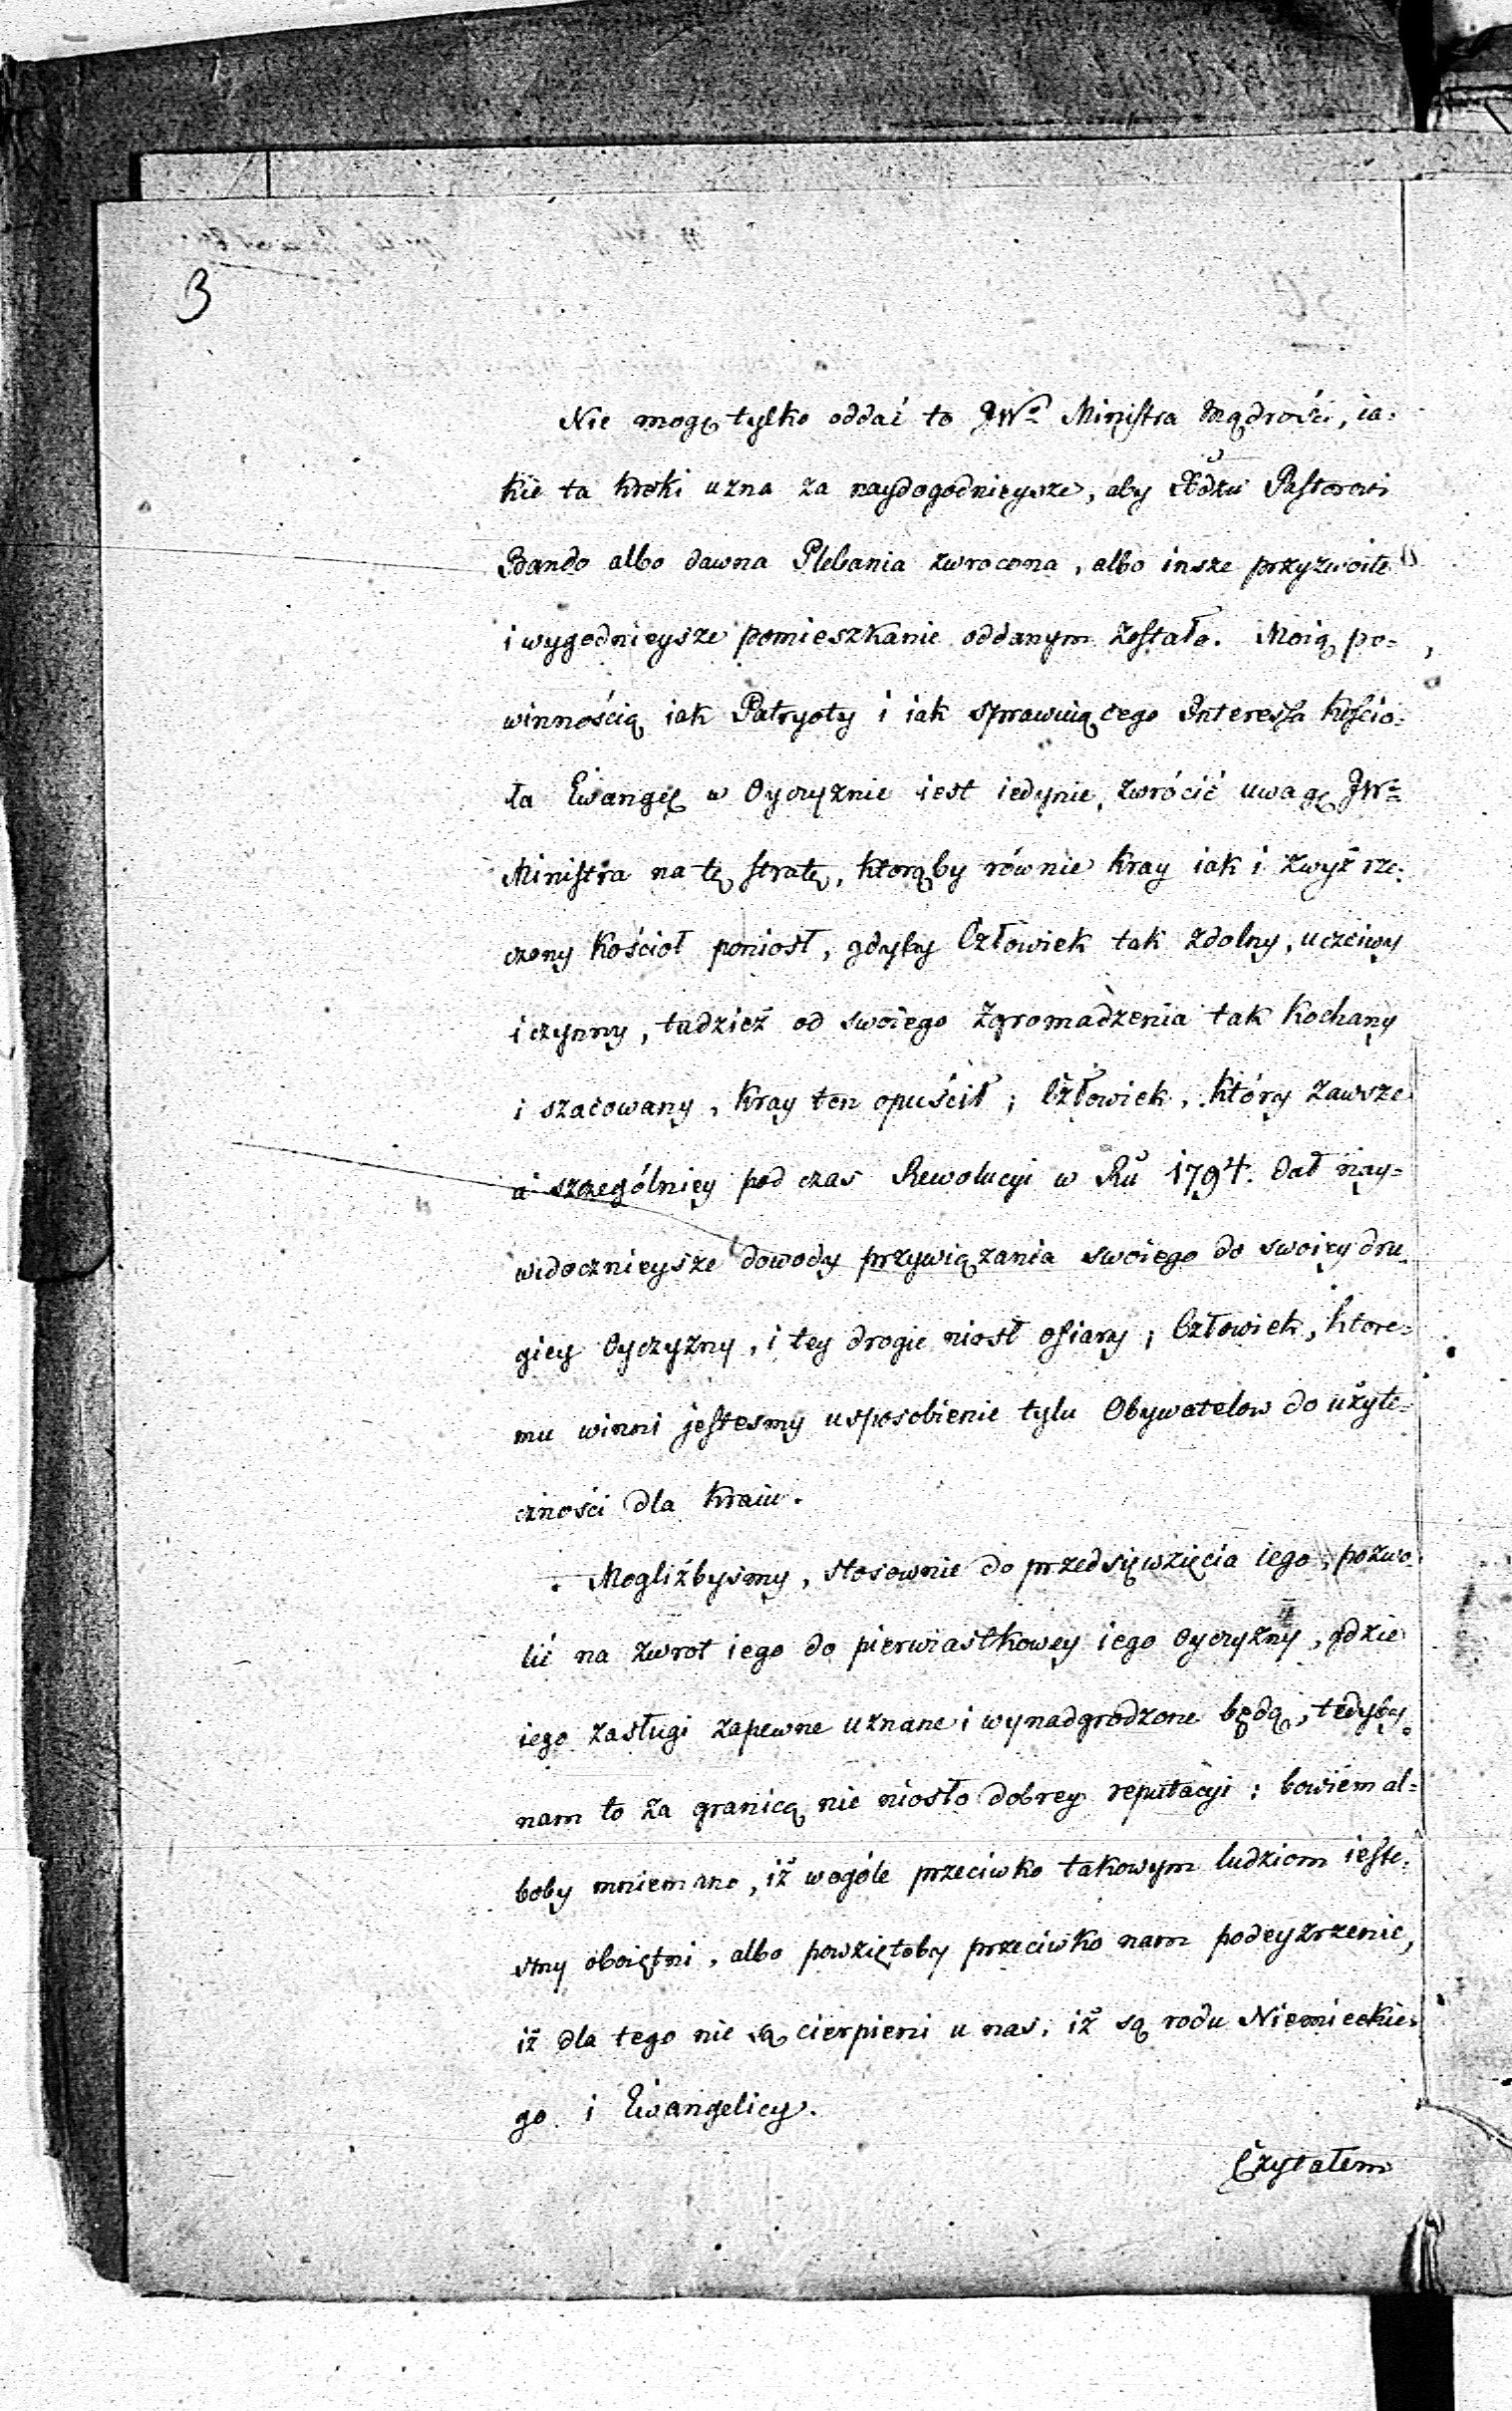 3
Nie mogę tylko oddać to JWo Ministra Mądrości, ia-
kie ta kroki uzna za naydogodnieysze, aby Xdzu Pastorowi
Bando albo dawna Plebania zwrocona, albo insze przyzwoite
i wygodnieysze pomieszkanie oddanym zostało. Moią po-
winnością iak Patryoty i iak sprawuiącego Interessa Kościo-
ła Ewangę w Oyczyznie iest iedynie, zwrócić uwagę JWo
Ministra na tę stratę, ktorąby równie kray iak i zwyż rze-
czony Kościoł poniosł, gdyby Człowiek tak zdolny, uczciwy
i czynny, tudzież od swoiego Zgromadzenia tak kochany
i szacowany, kray ten opuścił; Człowiek, który zawsze
a szczególniey pod czas Rewolucyi w Ru 1794. dał nay-
widocznieysze dowody przywiązania swoiego do swoiey dru-
giey Oyczyzny, i tey drogie niosł ofiary; Człowiek, ktore-
mu winni jestesmy usposobienie tylu Obywatelow do użyte-
czności dla kraiu.
Mogliżbysmy, stosownie do przedsięwzięcia iego, pozwo-
lić na zwrot iego do pierwiastkowey iego Oyczyzny, gdzie
iego zasługi zapewne uznane i wynadgrodzone będą, tedyby
nam to za granicą nie niosło dobrey reputacyi; bowiem al-
boby mniemano, iż wogóle przeciwko takowym ludziom ieste-
smy oboiętni, albo powziętoby przeciwko nam podeyzrzenie,
iż dla tego nie są cierpieni u nas, iż są rodu Niemieckie-
go i Ewangelicy.
Czytałem